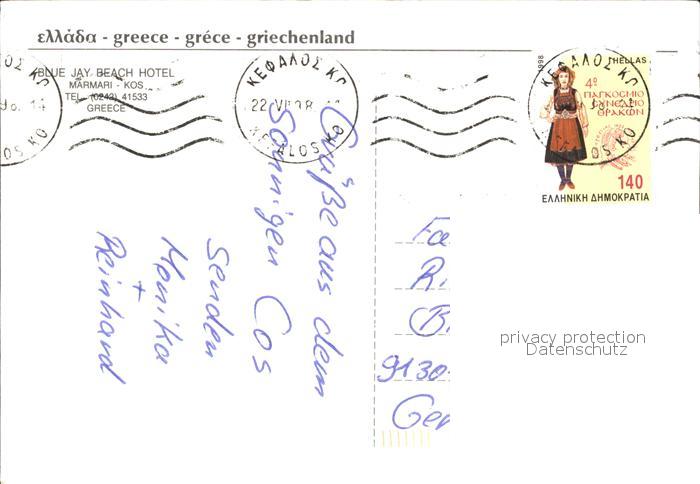 ελλάδα - greece - gréce - griechenland
BLUE JAY BEACH HOTEL
MARMARI - KOS
TEL. (0242) 41533
GREECE
ΚΕΦΑΛΟΣ ΚΩ
22 VII 98
KEFALOS KO
1998
HELLAS
4º
ΠΑΓΚΟΣΜΙΟ
ΣΥΝΕΔΡΙΟ
ΘΡΑΚΩΝ
140
ΕΛΛΗΝΙΚΗ ΔΗΜΟΚΡΑΤΙΑ
Grüße aus dem
Sonnigen Cos
senden
Monika
+
Reinhard
Fa
R
B
9130
Ger
privacy protection
Datenschutz